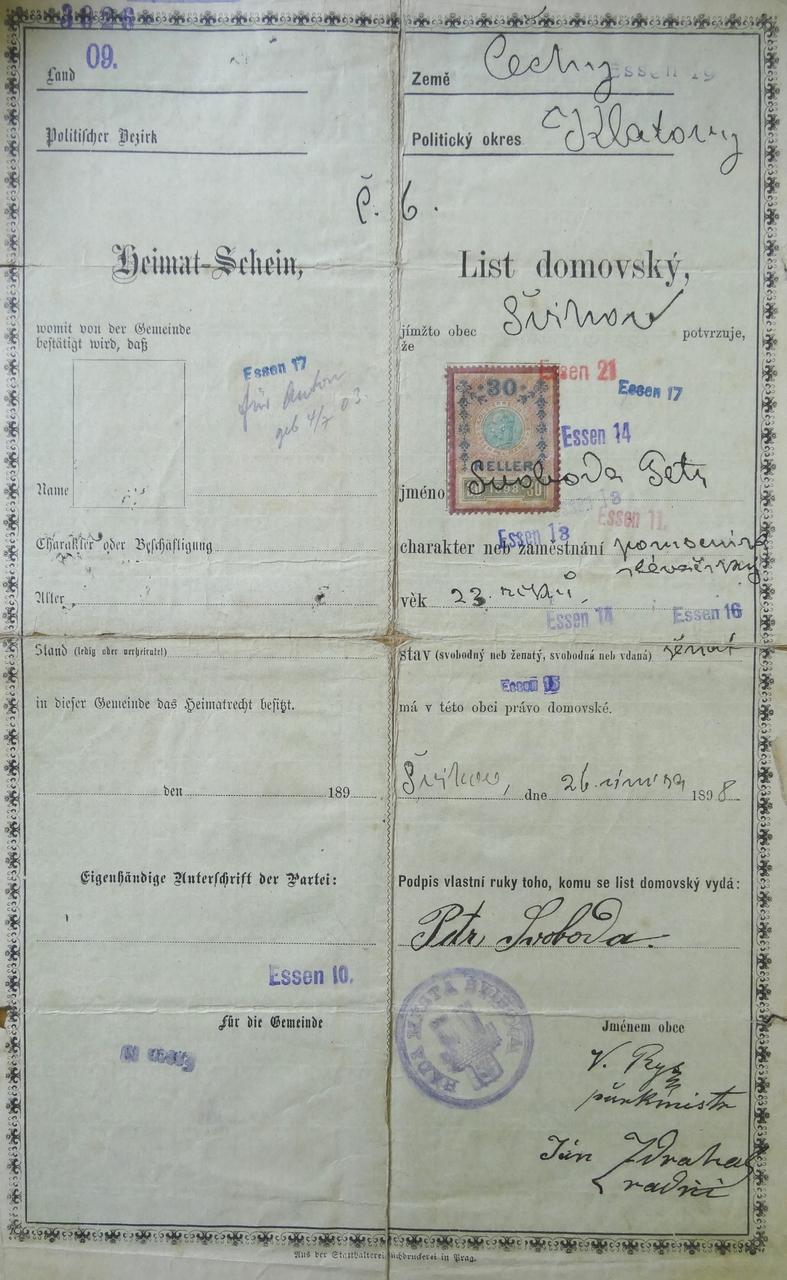 3826
09.
Land
Politischer Bezirk
Země Čechy
Essen 19
Politický okres Klatovy
Č. 6.
Heimat-Schein,
womit von der Gemeinde
bestätigt wird, daß
Essen 17
für Anton
geb 4/7 03
Name
Charakter oder Beschäftigung
Alter
Stand (ledig oder verheiratet)
in dieser Gemeinde das Heimatrecht besitzt.
den 189
Eigenhändige Unterschrift der Partei:
Essen 10.
Für die Gemeinde
List domovský,
jímžto obec Švihov potvrzuje,
že
Essen 21
Essen 17
30
Essen 14
HELLER
1898 30
jméno Svoboda Petr
Essen 13
Essen 11.
Essen 13
charakter neb zaměstnání pomocník
slévačský
věk 23 roků.
Essen 14
Essen 16
stav (svobodný neb ženatý, svobodná neb vdaná) ženat
Essen 15
má v této obci právo domovské.
Švihov, dne 26 února 1898
Podpis vlastní ruky toho, komu se list domovský vydá:
Petr Svoboda.
RADA MĚSTA ŠVIHOVA
Jménem obce
V. Rys
purkmistr
Jan
radní
Aus der Statthalterei-Buchdruckerei in Prag.